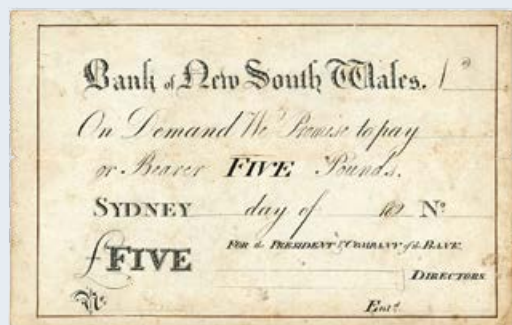 Bank of New South Wales. No
On Demand We Promise to pay
or Bearer FIVE Pounds.
SYDNEY day of 18 No
£FIVE FOR the PRESIDENT & COMPANY of the BANK.
DIRECTORS
No Entd